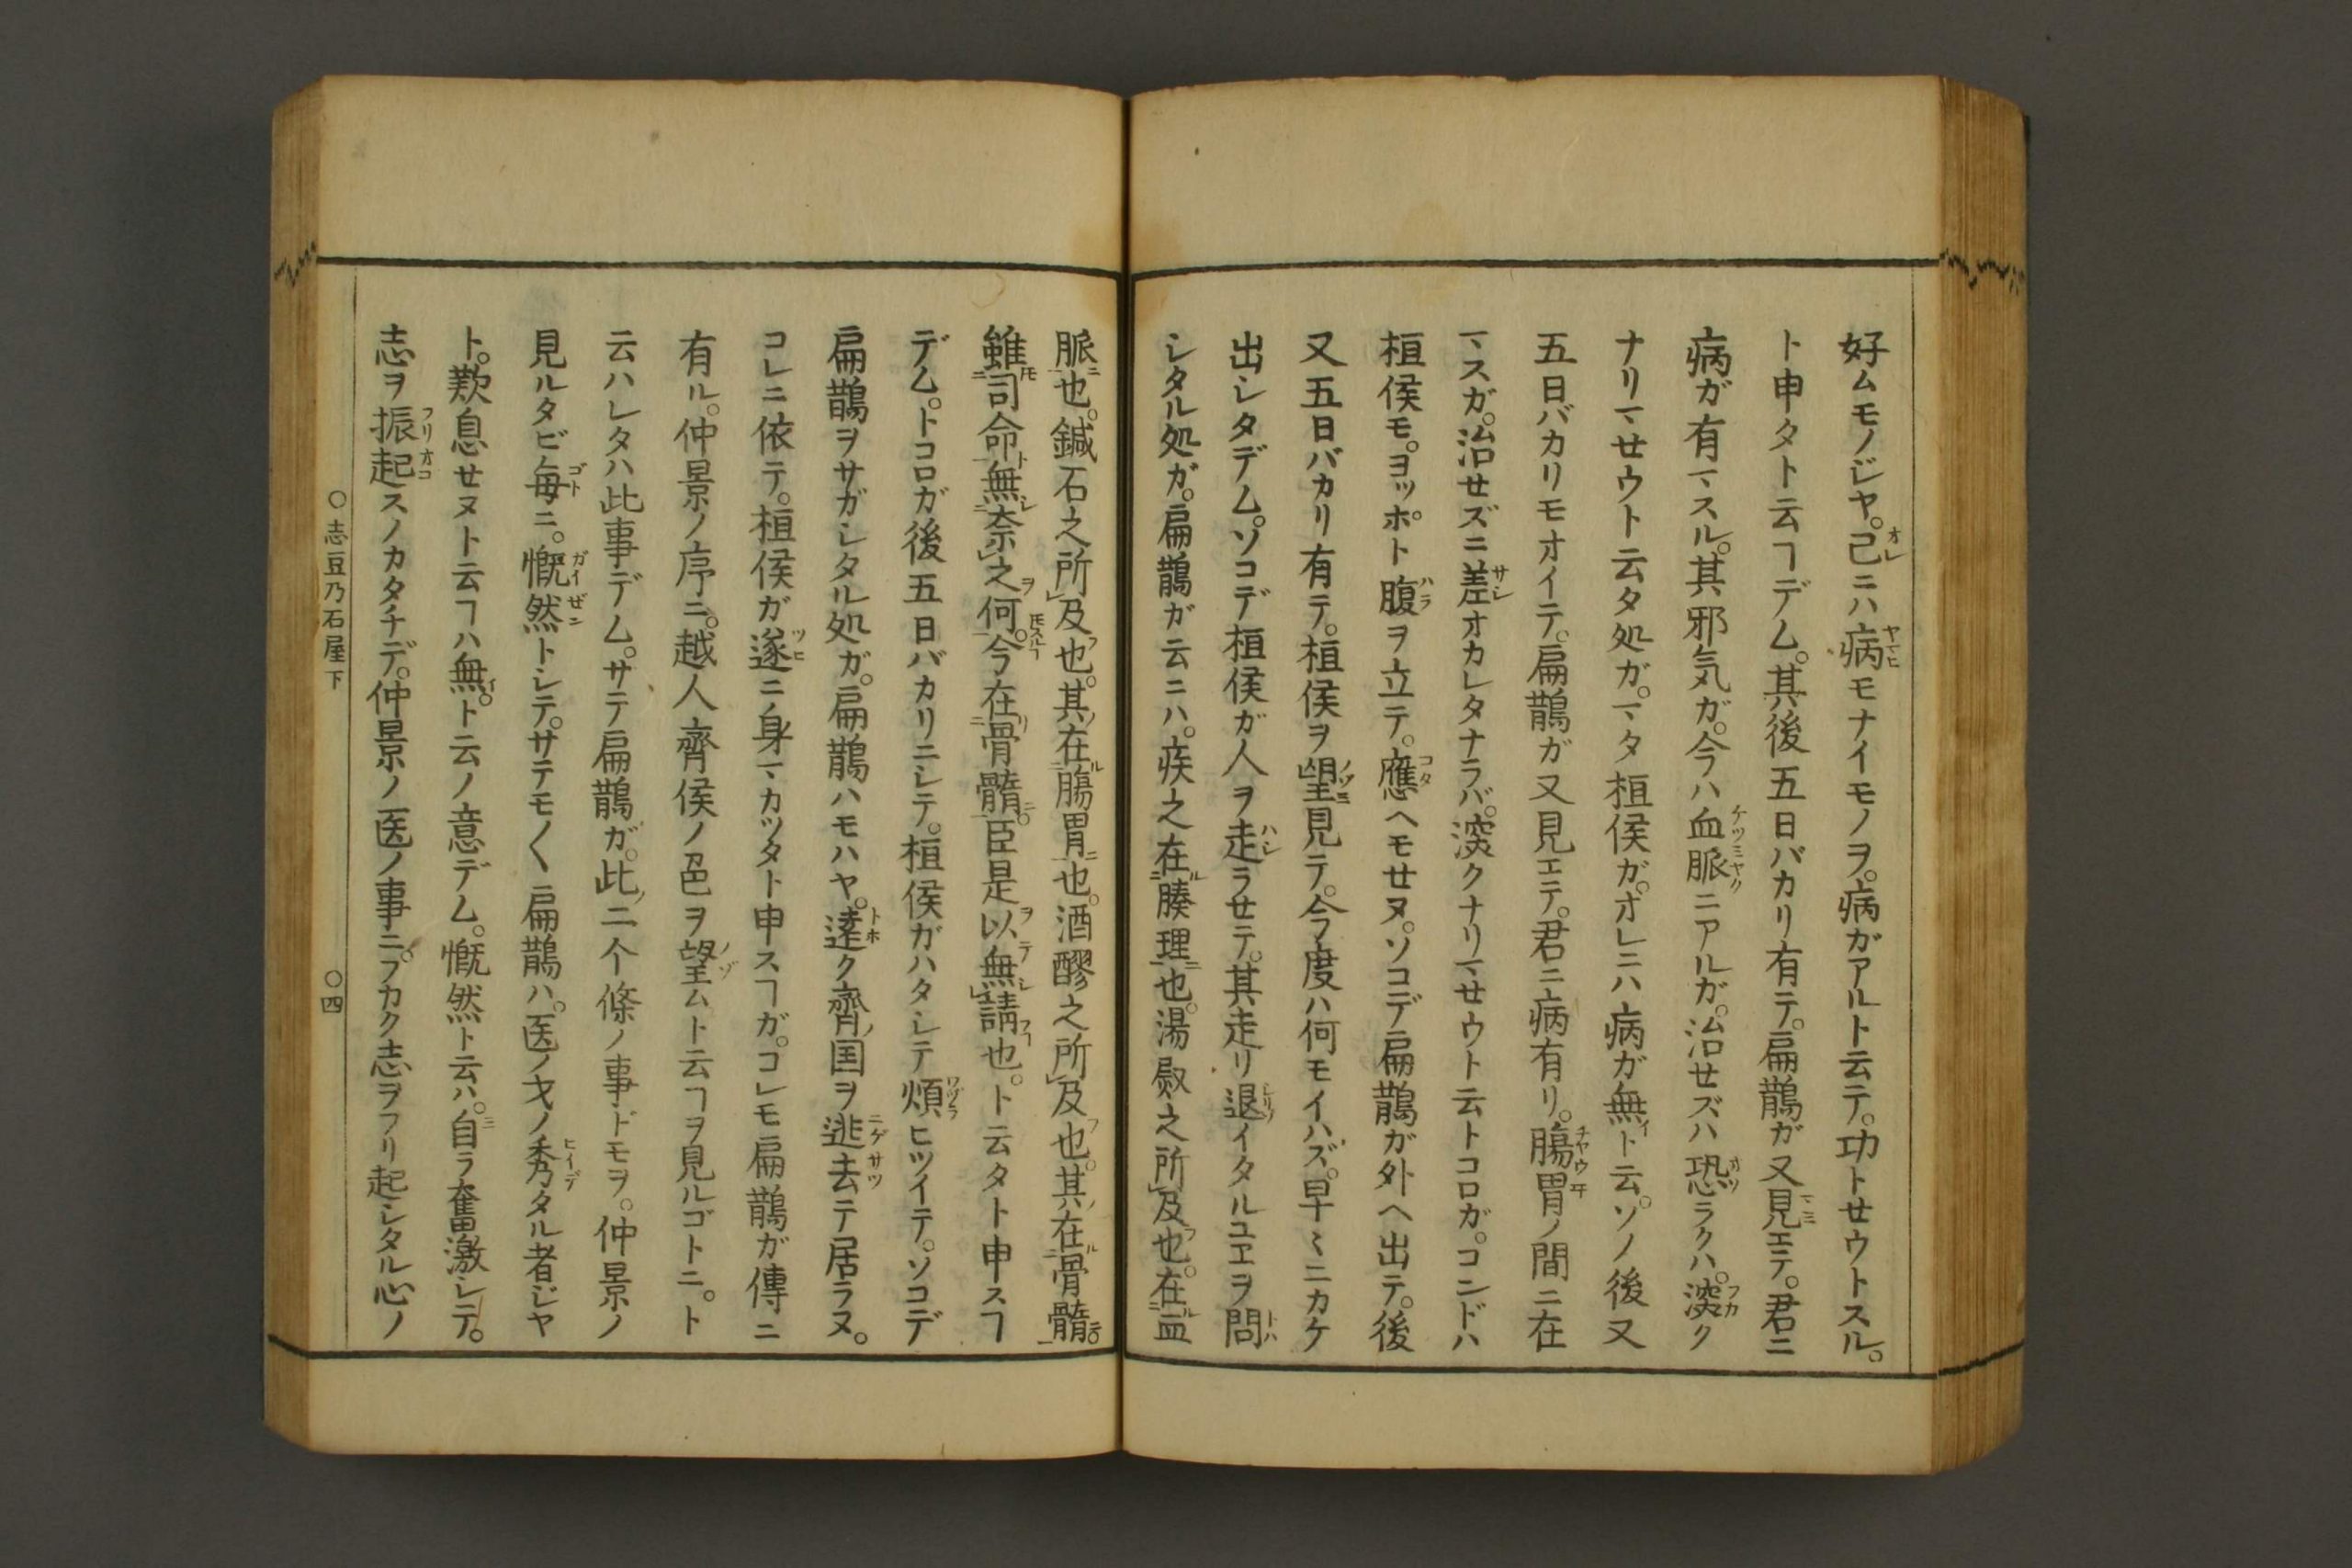 好ムモノジヤ。己ニハ病モナイモノヲ。病ガアルト云テ。功トせウトスル。
ト申タト云ヿデム。其後五日バカリ有テ。扁鵲ガ又見エテ。君ニ
病ガ有マスル。其邪気ガ。今ハ血脈ニアルガ。治せズハ恐ラクハ。深ク
ナリマせウト云タ処ガ。マタ桓侯ガ。オレニハ病ガ無ト云。ソノ後又
五日バカリモオイテ。扁鵲ガ又見エテ。君ニ病有リ。腸胃ノ間ニ在
マスガ。治せズニ差オカレタナラバ。深クナリマせウト云トコロガ。コンドハ
桓侯モ。ヨッポト腹ヲ立テ。應ヘモせヌ。ソコデ扁鵲ガ外ヘ出テ。後
又五日バカリ有テ。桓侯ヲ望見テ。今度ハ何モイハズ。早〻ニカケ
出シタデム。ソコデ桓侯ガ人ヲ走ラせテ。其走リ退イタルユヱヲ問
シタル処ガ。扁鵲ガ云ニハ。疾之在腠理也。湯熨之所及也。在血
脈也。鍼石之所及也。其在腸胃也。酒醪之所及也。其在骨髓
雖司命無奈之何。今在骨髓。臣是以無請也。ト云タト申スヿ
デム。トコロガ後五日バカリニシテ。桓侯ガハタシテ煩ヒツイテ。ソコデ
扁鵲ヲサガシタル処ガ。扁鵲ハモハヤ。遠ク齊国ヲ逃去テ居ラヌ。
コレニ依テ。桓侯ガ遂ニ身マカツタト申スヿガ。コレモ扁鵲ガ傳ニ
有ル。仲景ノ序ニ。越人齊侯ノ色ヲ望ムト云ヿヲ見ルゴトニ。ト
云ハレタハ此事デム。サテ扁鵲ガ。此二个條ノ事ドモヲ。仲景ノ
見ルタビ毎ニ。慨然トシテ。サテモ〱扁鵲ハ。医ノ才ノ秀タル者ジヤ
ト。歎息せヌト云ヿハ無。ト云ノ意デム。慨然ト云ハ。自ラ奮激シテ。
志ヲ振起スノカタチデ。仲景ノ医ノ事ニ。フカク志ヲフリ起シタル心ノ
○志豆乃石屋下　○四